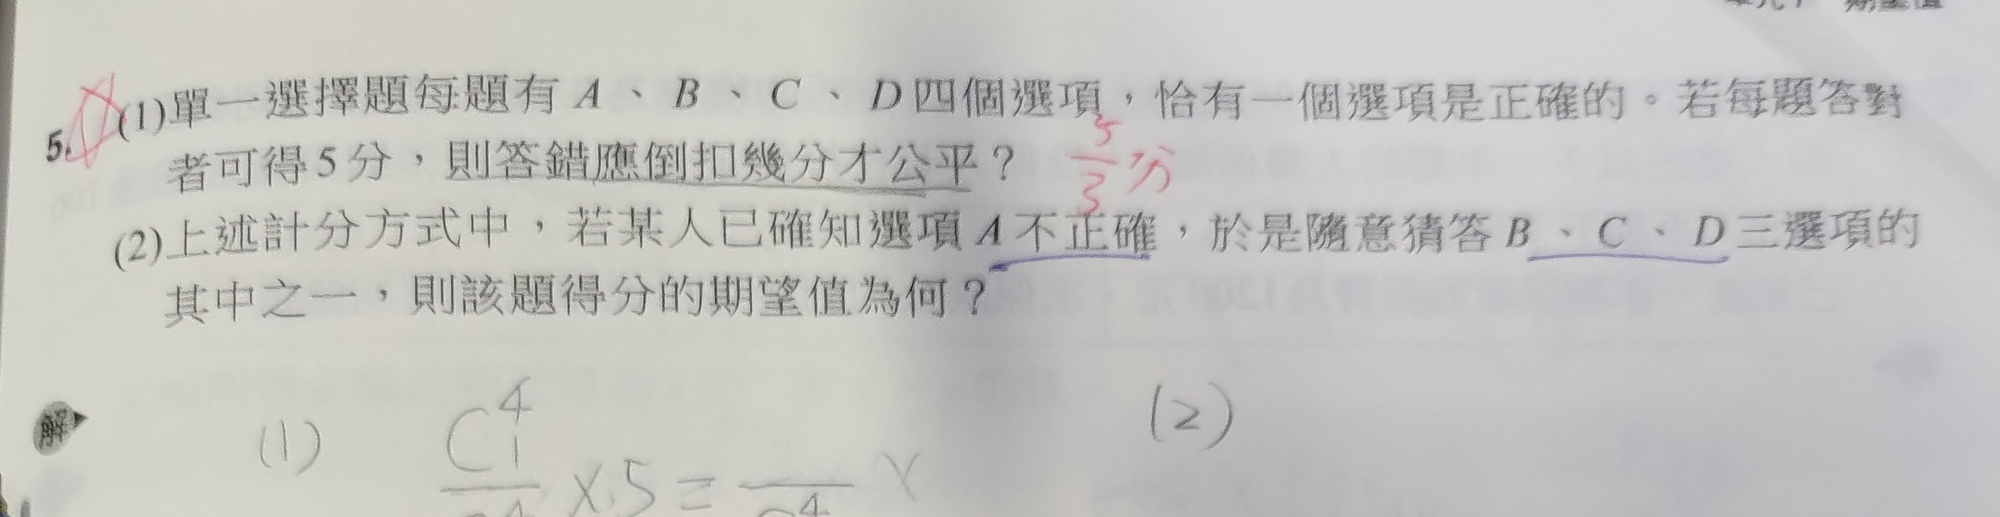 期望值
5. (1)單一選擇題每題有 A、B、C、D四個選項，恰有一個選項是正確的。若每題答對
者可得5分，則答錯應倒扣幾分才公平？ 5/3分
(2)上述計分方式中，若某人已確知選項A不正確，於是隨意猜答B、C、D三選項的
其中之一，則該題得分的期望值為何？
解
(1) C⁴₁ × 5 = ×
(2)